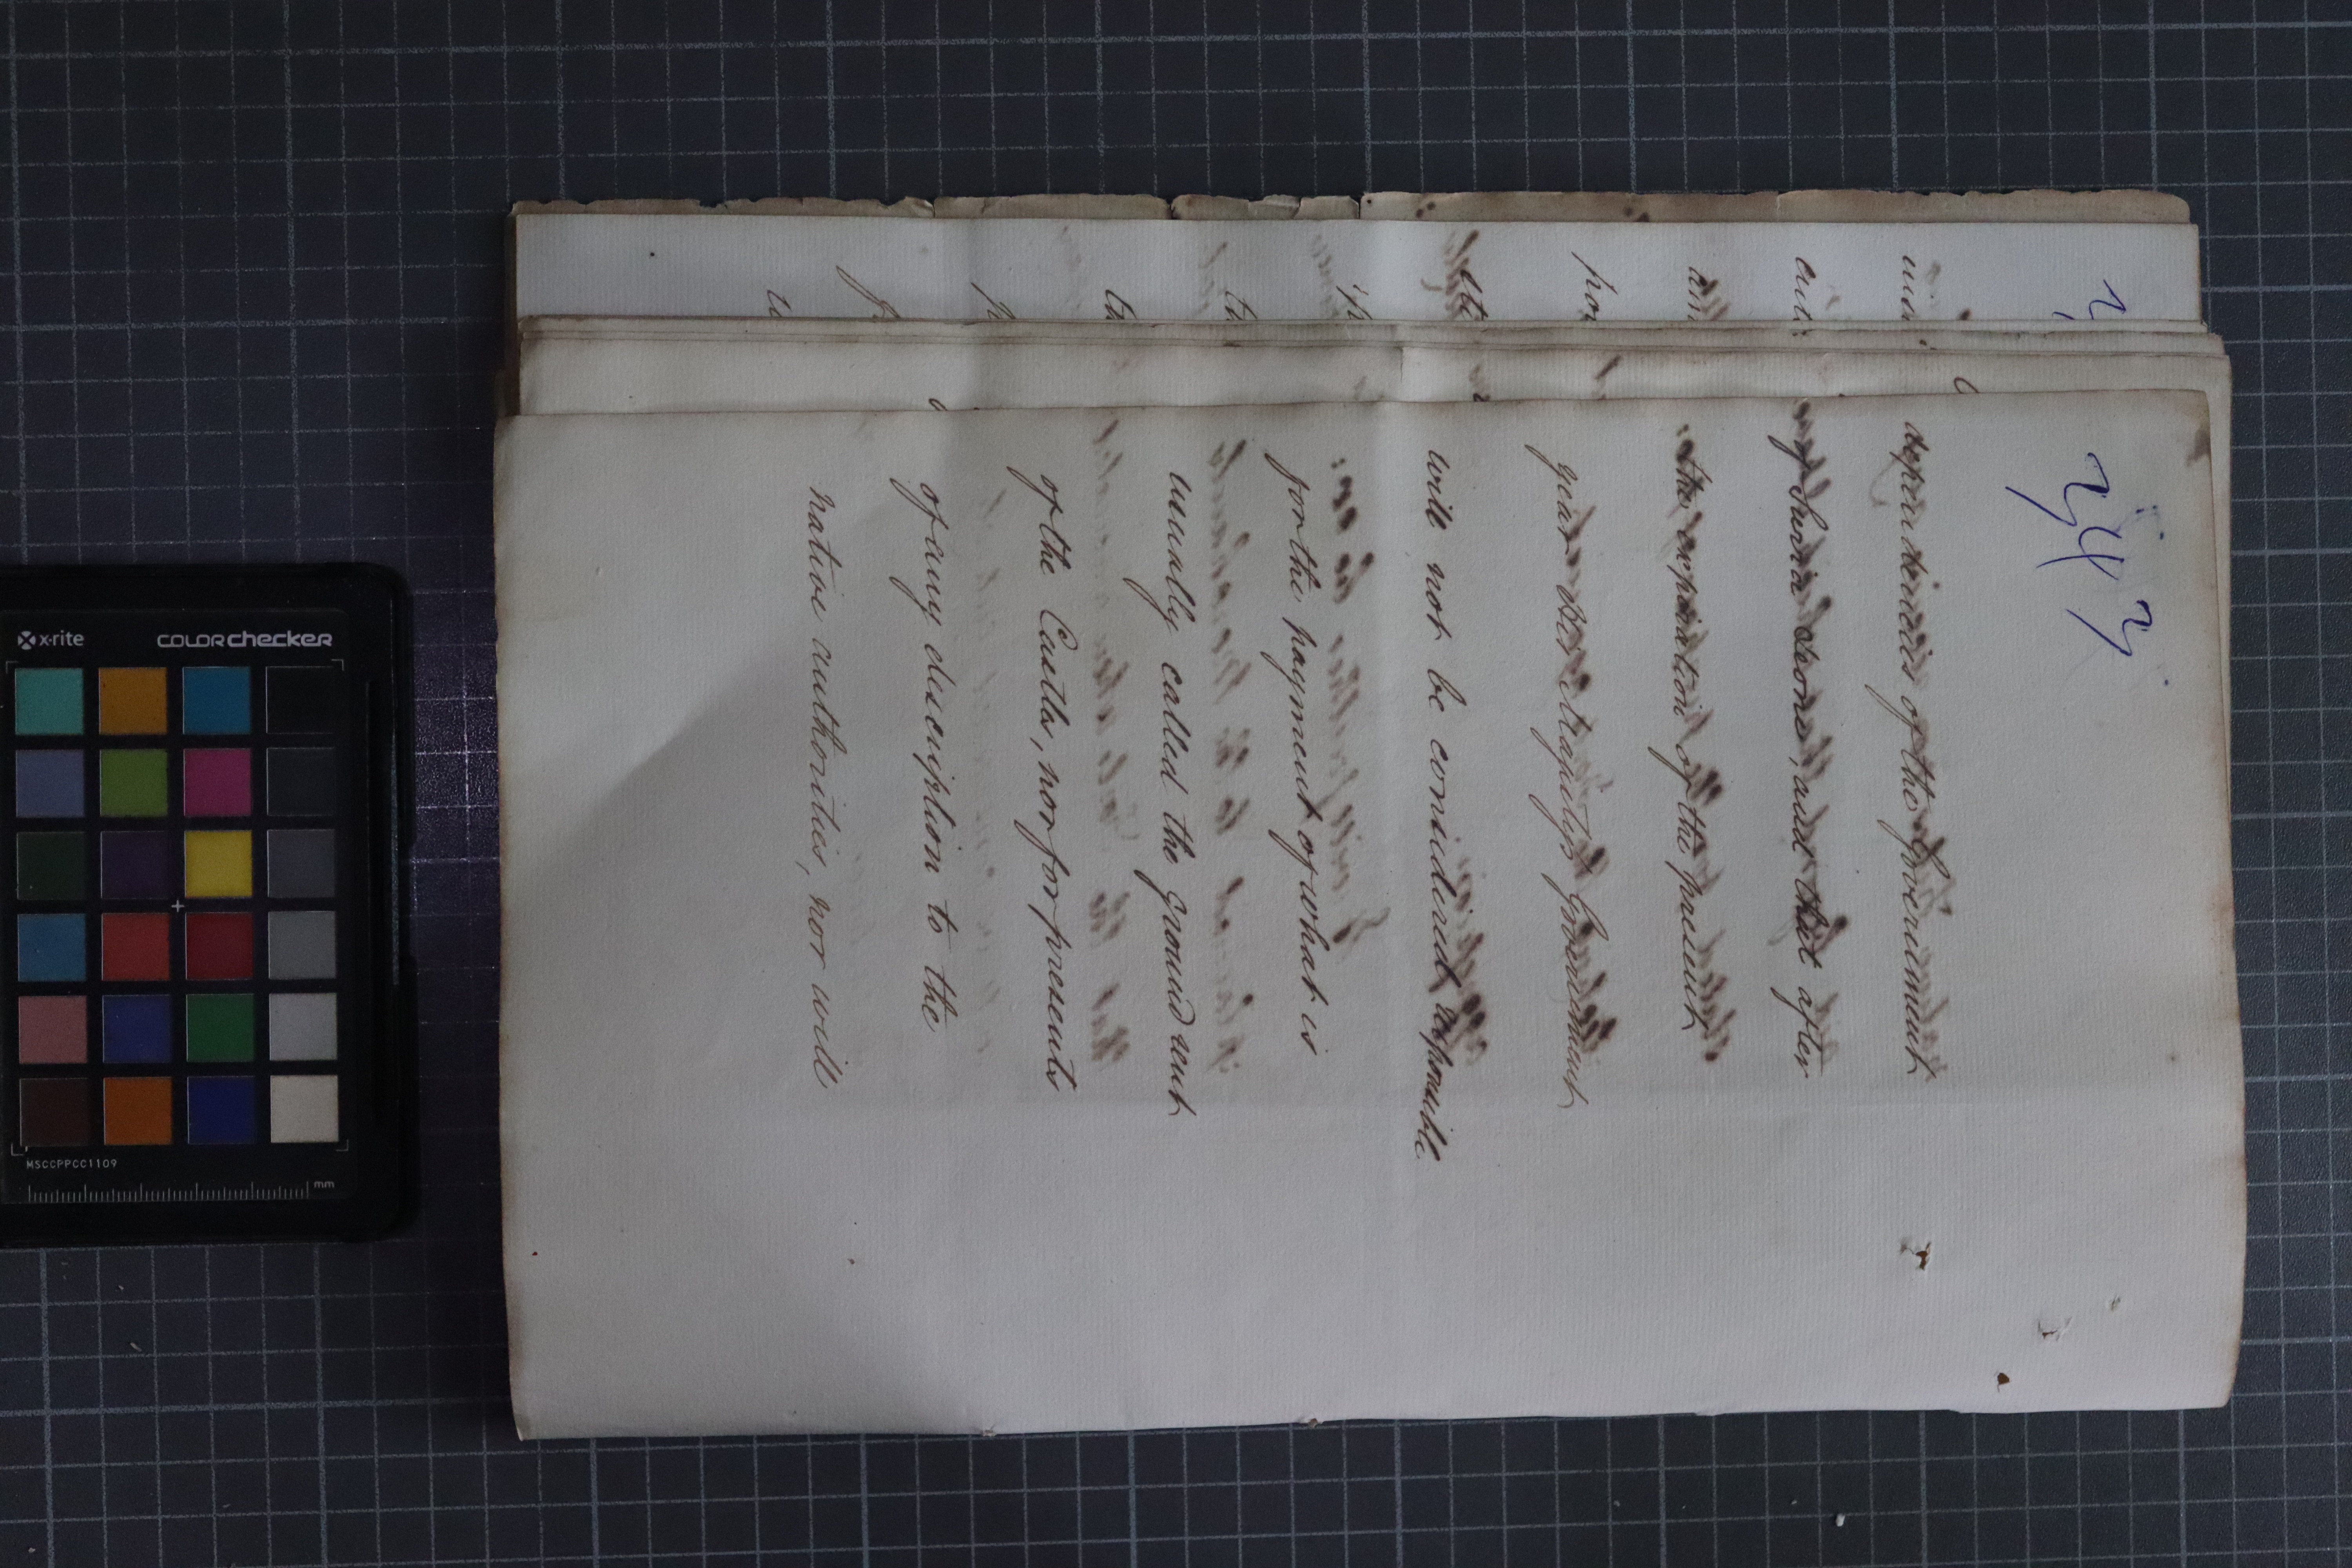 243
dependencies of the Government
of Sierra Leone, and that after
the expiration of the present
year Her Majesty's Government
will not be considered responsible
for the payment of what is
usually called the ground rent
of the Castles, nor for presents
of any description to the
native authorities, nor will
x·rite
COLORchecker
MSCCPPCC1109
mm